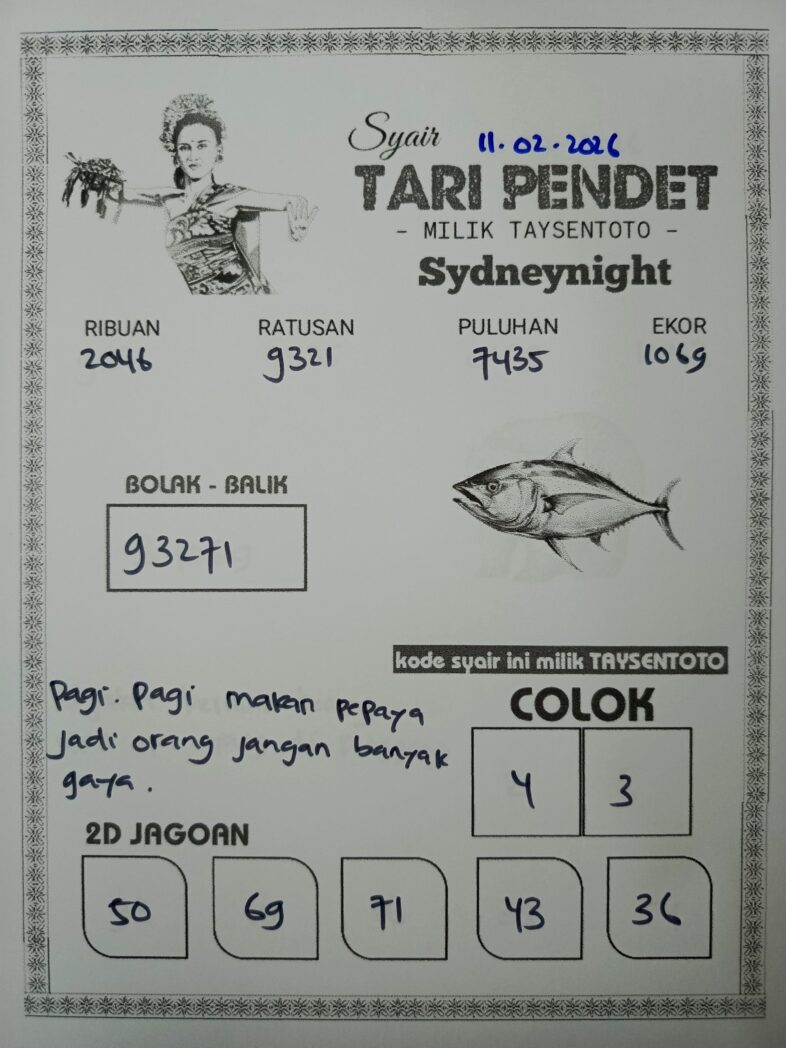 Syair 11.02.2026
TARI PENDET
- MILIK TAYSENTOTO -
Sydneynight
RIBUAN RATUSAN PULUHAN EKOR
2046 9321 7435 1069
BOLAK - BALIK
93271
kode syair ini milik TAYSENTOTO
Pagi. Pagi makan pepaya
Jadi orang jangan banyak
gaya.
COLOK
4 3
2D JAGOAN
50 69 71 43 36